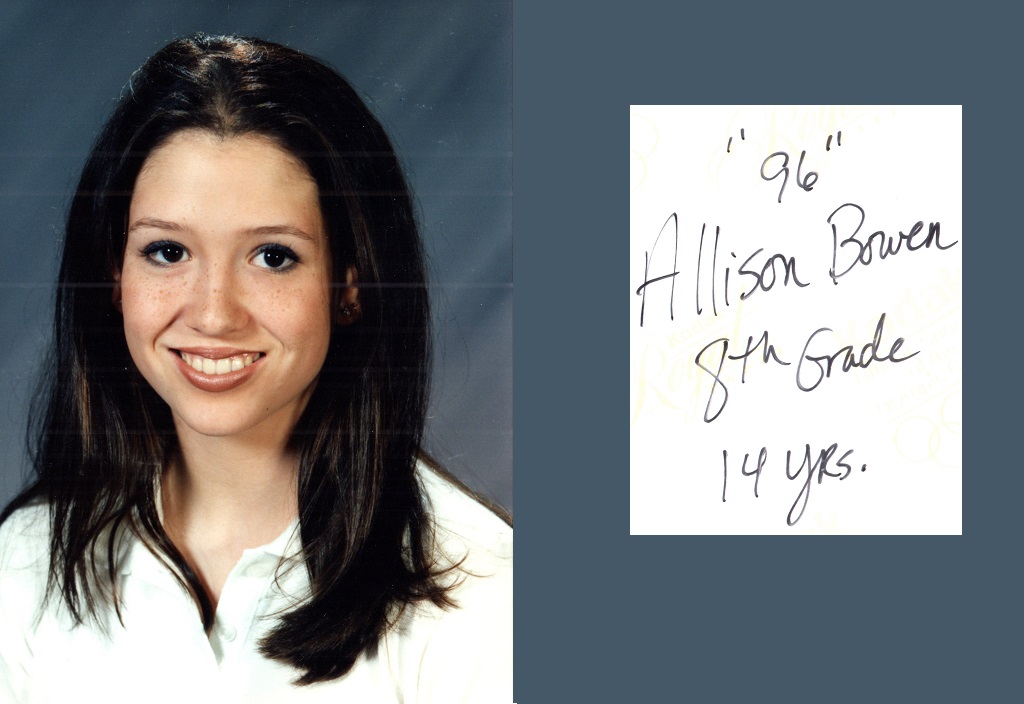 "96"
Allison Bowen
8th Grade
14 yrs.